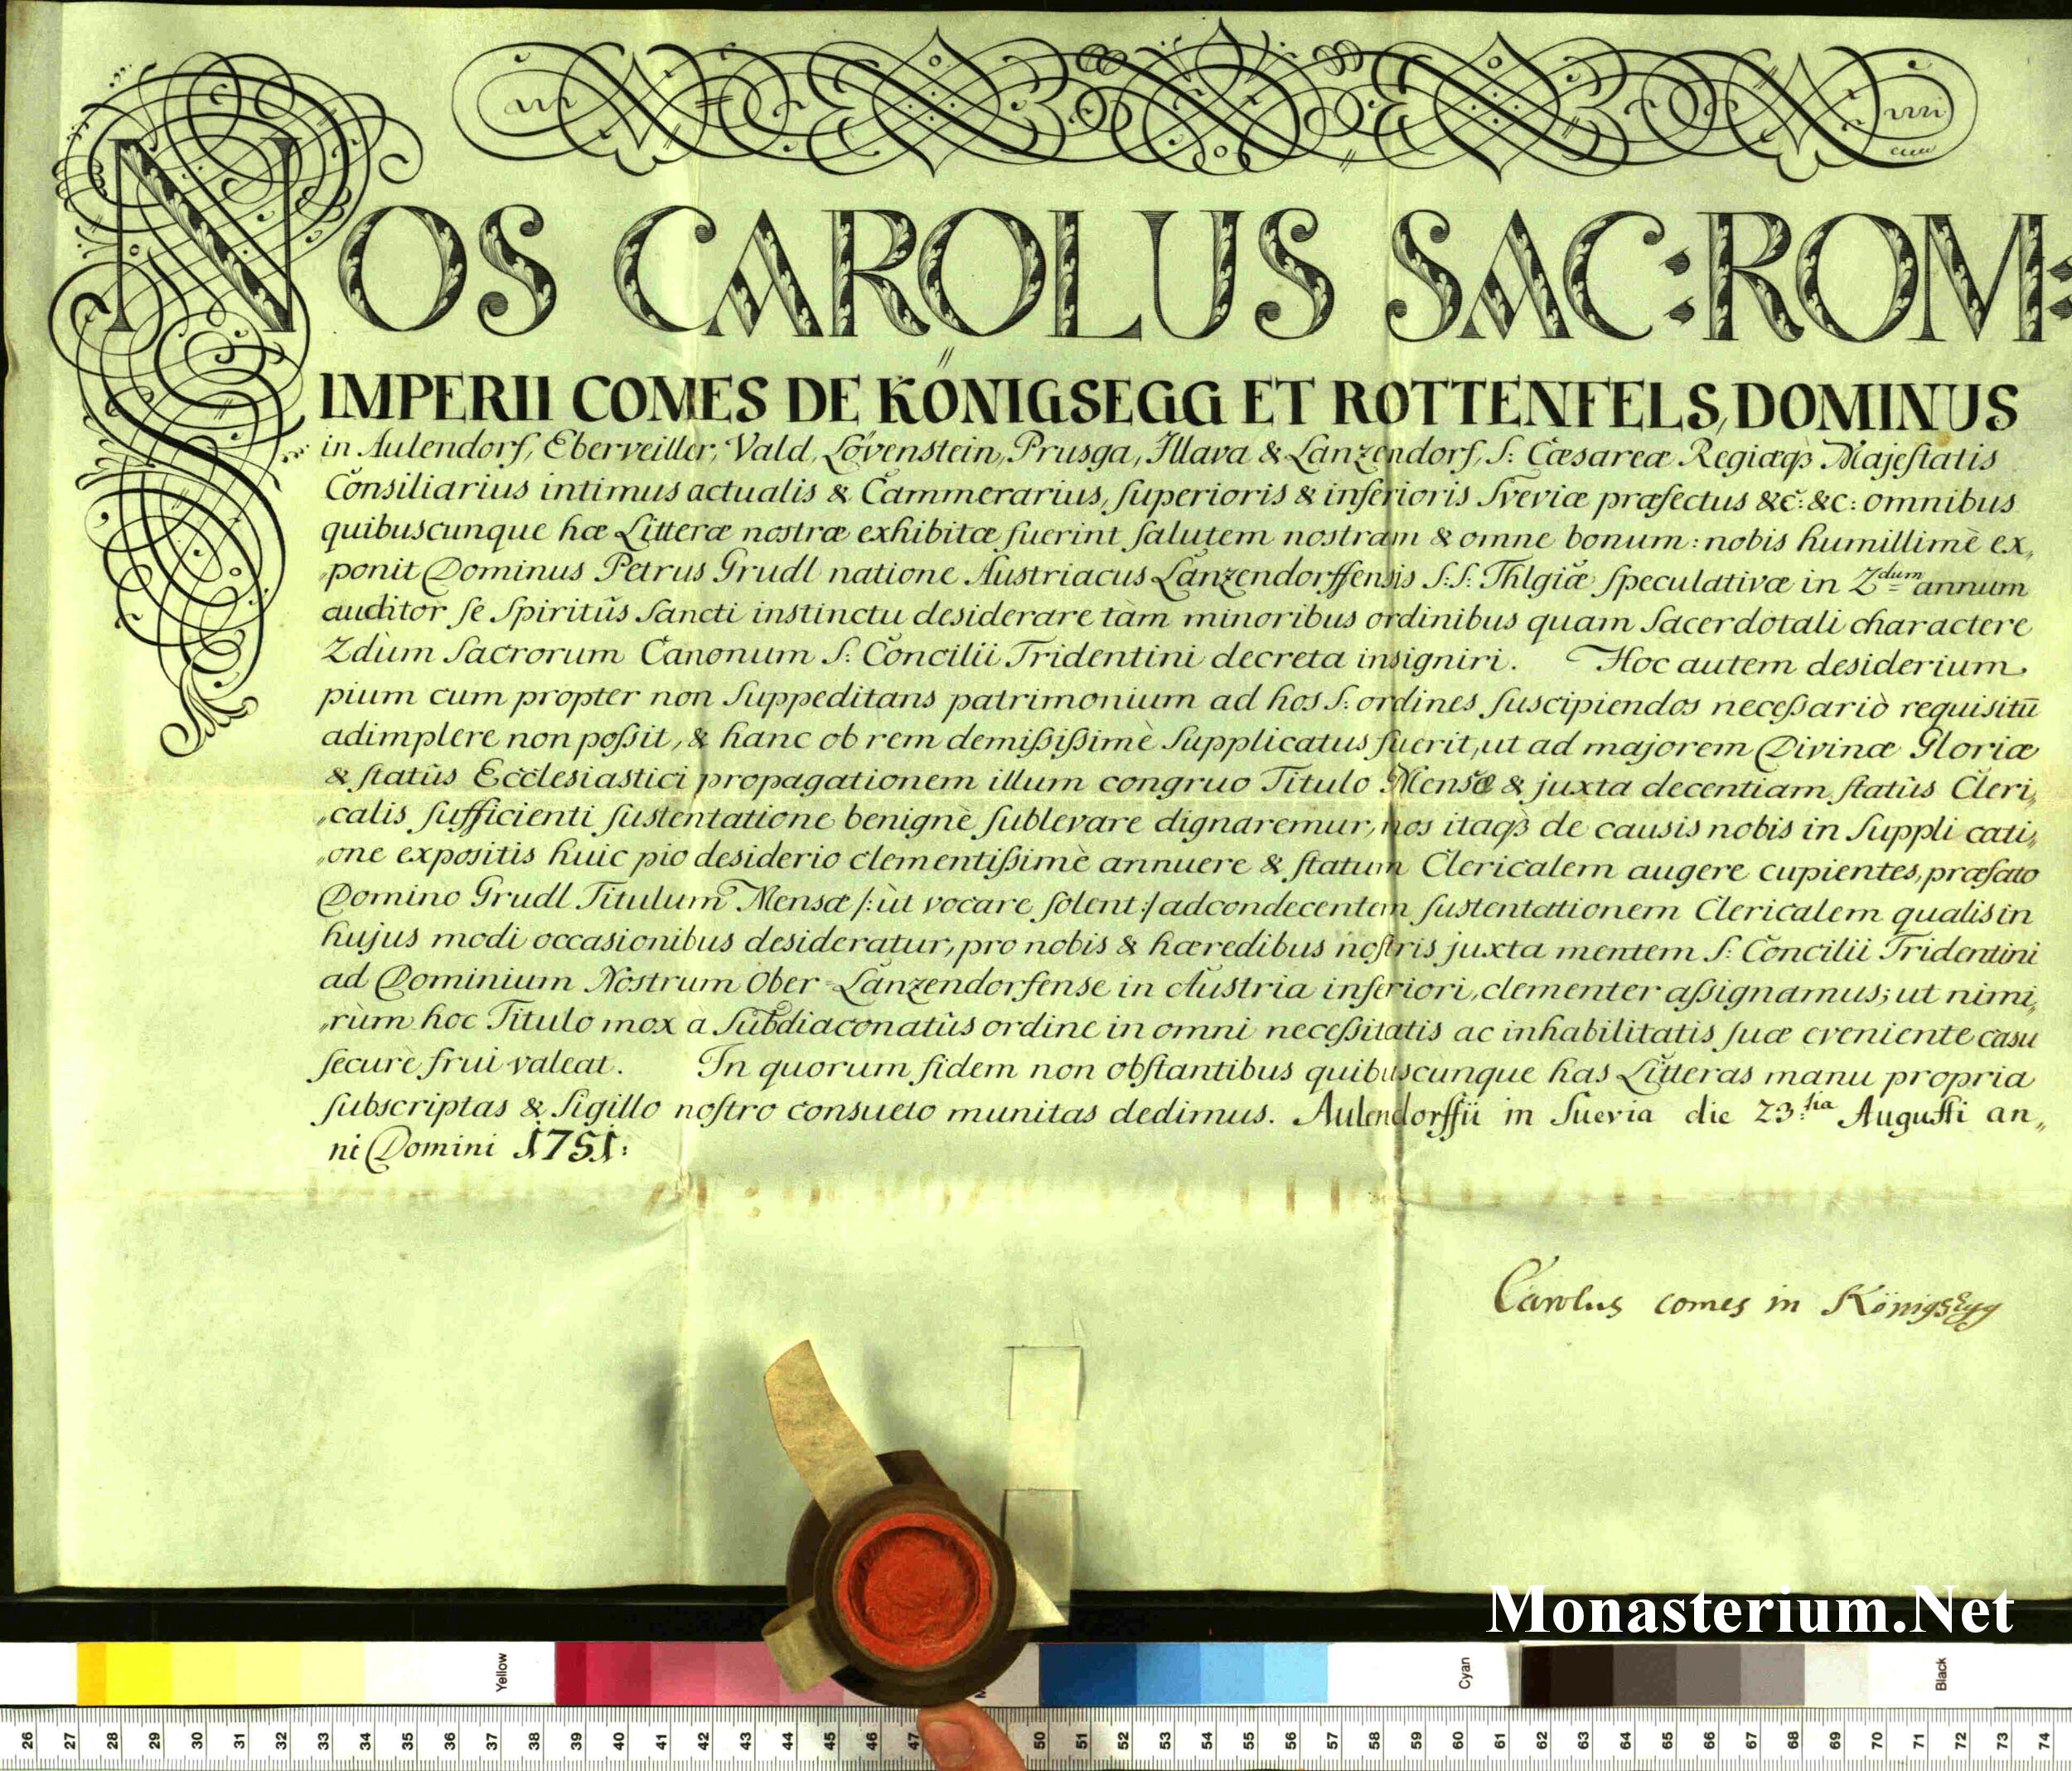 NOS CAROLUS SAC: ROM:
IMPERII COMES DE KÖNIGSEGG ET ROTTENFELS, DOMINUS
in Aulendorf, Eberveiller, Vald, Lövenstein, Prusga, Illava & Lanzendorf, S: Cæsareæ Regiæq3 Majeſtatis
Conſiliarius intimus actualis & Cammerarius, ſuperioris & inferioris Sveviæ præfectus &c: &c: omnibus
quibuscunque hæ Litteræ nostræ exhibitæ fuerint ſalutem nostram & omne bonum: nobis humillimè ex„
„ponit Dominus Petrus Grudl natione Austriacus Lanzendorffensis S:S: Thlgiæ ſpeculativæ in 2dum annum
auditor ſe Spiritûs Sancti instinctu desiderare tàm minoribus ordinibus quam Sacerdotali charactere
2dùm Sacrorum Canonum S: Concilii Tridentini decreta insigniri. Hoc autem desiderium
pium cum propter non Suppeditans patrimonium ad hos S: ordines ſuscipiendos neceſsariò requisitū
adimplere non poſsit, & hanc ob rem demiſsiſsimè Supplicatus fuerit, ut ad majorem Divinæ Gloriæ
& ſtatûs Ecclesiastici propagationem illum congruo Titulo Mensæ & juxta decentiam ſtatûs Cleri„
„calis ſufficienti ſustentatione benignè ſublevare dignaremur, nos itaq3 de causis nobis in Suppli cati„
„one expositis huic pio desiderio clementiſsimè annuere & ſtatum Clericalem augere cupientes, præfato
Domino Grudl Titulum Mensæ /: ùt vocare ſolent :/ ad condecentem ſustentationem Clericalem qualis in
hujus modi occasionibus desideratur, pro nobis & hæredibus noſtris juxta mentem S: Concilii Tridentini
ad Dominium Nostrum Ober-Lanzendorfense in Austria inferiori, clementer aſsignamus; ut nimi„
„rùm hoc Titulo mox a Subdiaconatûs ordine in omni neceſsitatis ac inhabilitatis ſuæ eveniente casu
ſecurè frui valeat. In quorum fidem non obſtantibus quibuscunque has Litteras manu propria
ſubscriptas & Sigillo noſtro consueto munitas dedimus. Aulendorffii in Suevia die 23:tia Auguſti an„
ni Domini 1751:
Carolus comes in Königsegg
Monasterium.Net
Yellow
Cyan
Black
26 27 28 29 30 31 32 33 34 35 36 37 38 39 40 41 42 43 44 45 46 47 50 51 52 53 54 55 56 57 58 59 60 61 62 63 64 65 66 67 68 69 70 71 72 73 74